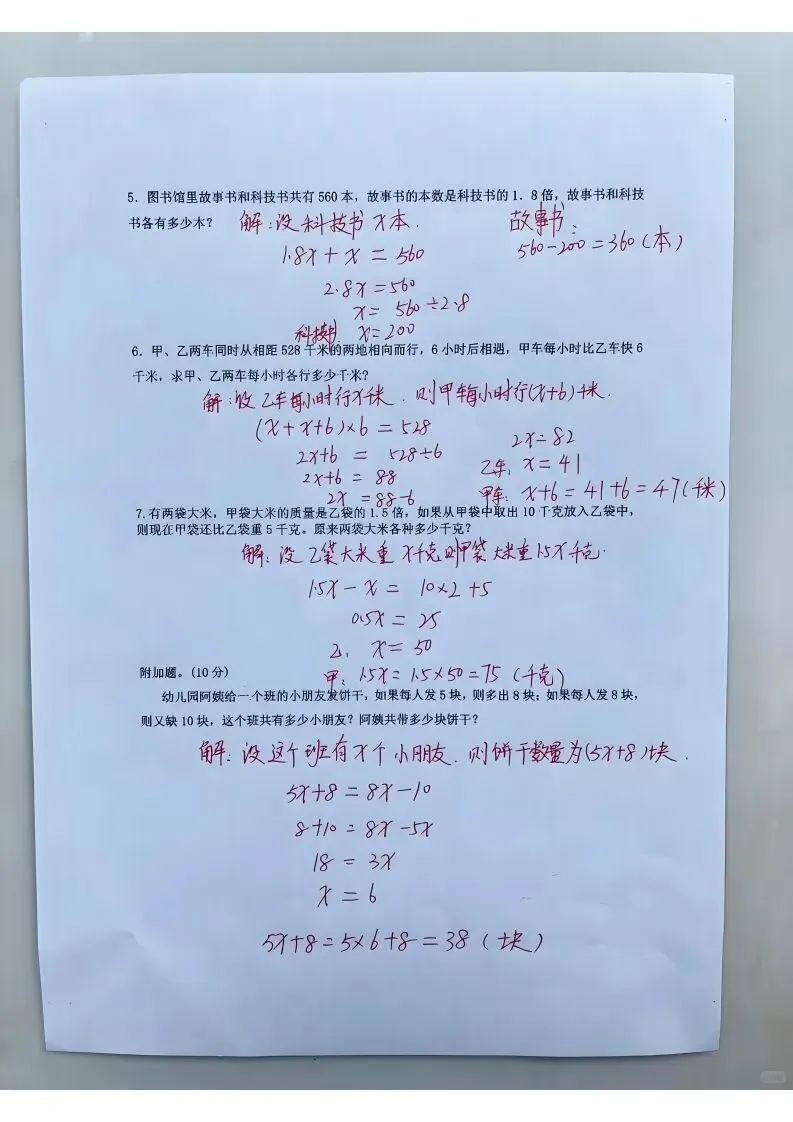 5. 图书馆里故事书和科技书共有560本，故事书的本数是科技书的1.8倍，故事书和科技
书各有多少本？ 解：设科技书x本. 故事书：
1.8x+x=560 560-200=360(本)
2.8x=560
x=560÷2.8
科技书 x=200
6. 甲、乙两车同时从相距528千米的两地相向而行，6小时后相遇，甲车每小时比乙车快6
千米，求甲、乙两车每小时各行多少千米？
解：设乙车每小时行x千米.则甲车每小时行(x+6)千米.
(x+x+6)×6=528
2x+6=528÷6 2x=82
2x+6=88 乙车：x=41
2x=88-6 甲车：x+6=41+6=47(千米)
7.有两袋大米，甲袋大米的质量是乙袋的1.5倍，如果从甲袋中取出10千克放入乙袋中，
则现在甲袋还比乙袋重5千克。原来两袋大米各种多少千克？
解：设乙袋大米重x千克则甲袋大米重1.5x千克.
1.5x-x=10×2+5
0.5x=25
乙：x=50
附加题。(10分) 甲：1.5x=1.5×50=75(千克)
幼儿园阿姨给一个班的小朋友发饼干，如果每人发5块，则多出8块；如果每人发8块，
则又缺10块，这个班共有多少小朋友？阿姨共带多少块饼干？
解：设这个班有x个小朋友.则饼干数量为(5x+8)块.
5x+8=8x-10
8+10=8x-5x
18=3x
x=6
5x+8=5×6+8=38(块)